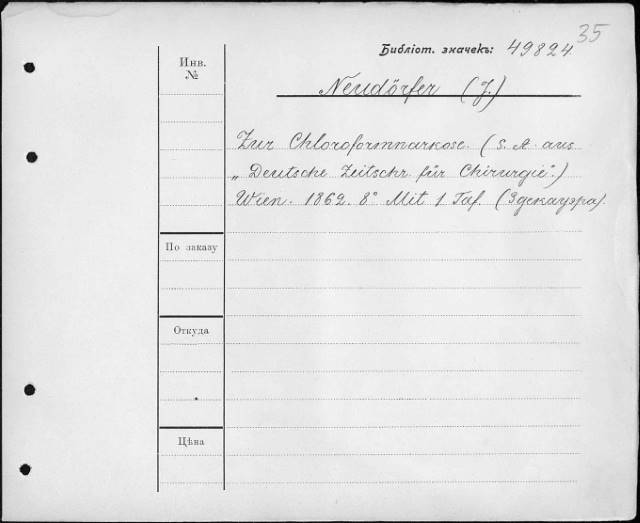 35
Библіот. значекъ: 49824.
Инв. №
Neudörfer (J.)
Zur Chloroformnarkose. (S. A. aus
„Deutsche Zeitschr. für Chirurgie“.)
Wien. 1862. 8° Mit 1 Taf. (Здекауэра).
По заказу
Откуда
Цѣна